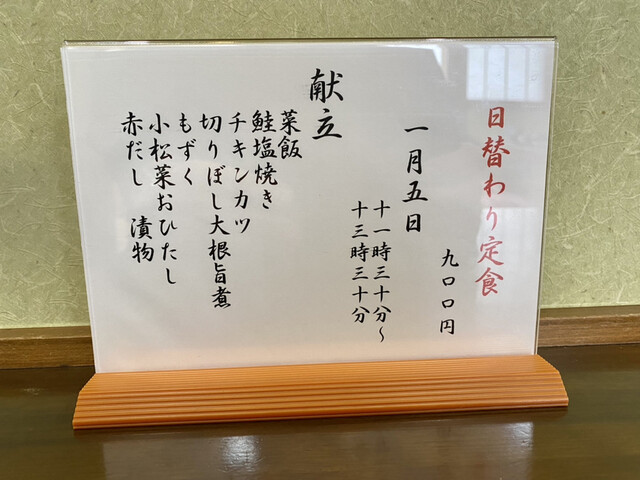 日替わり定食
九〇〇円
一月五日
十一時三十分～
十三時三十分
献立
菜飯
鮭塩焼き
チキンカツ
切りぼし大根旨煮
もずく
小松菜おひたし
赤だし　漬物